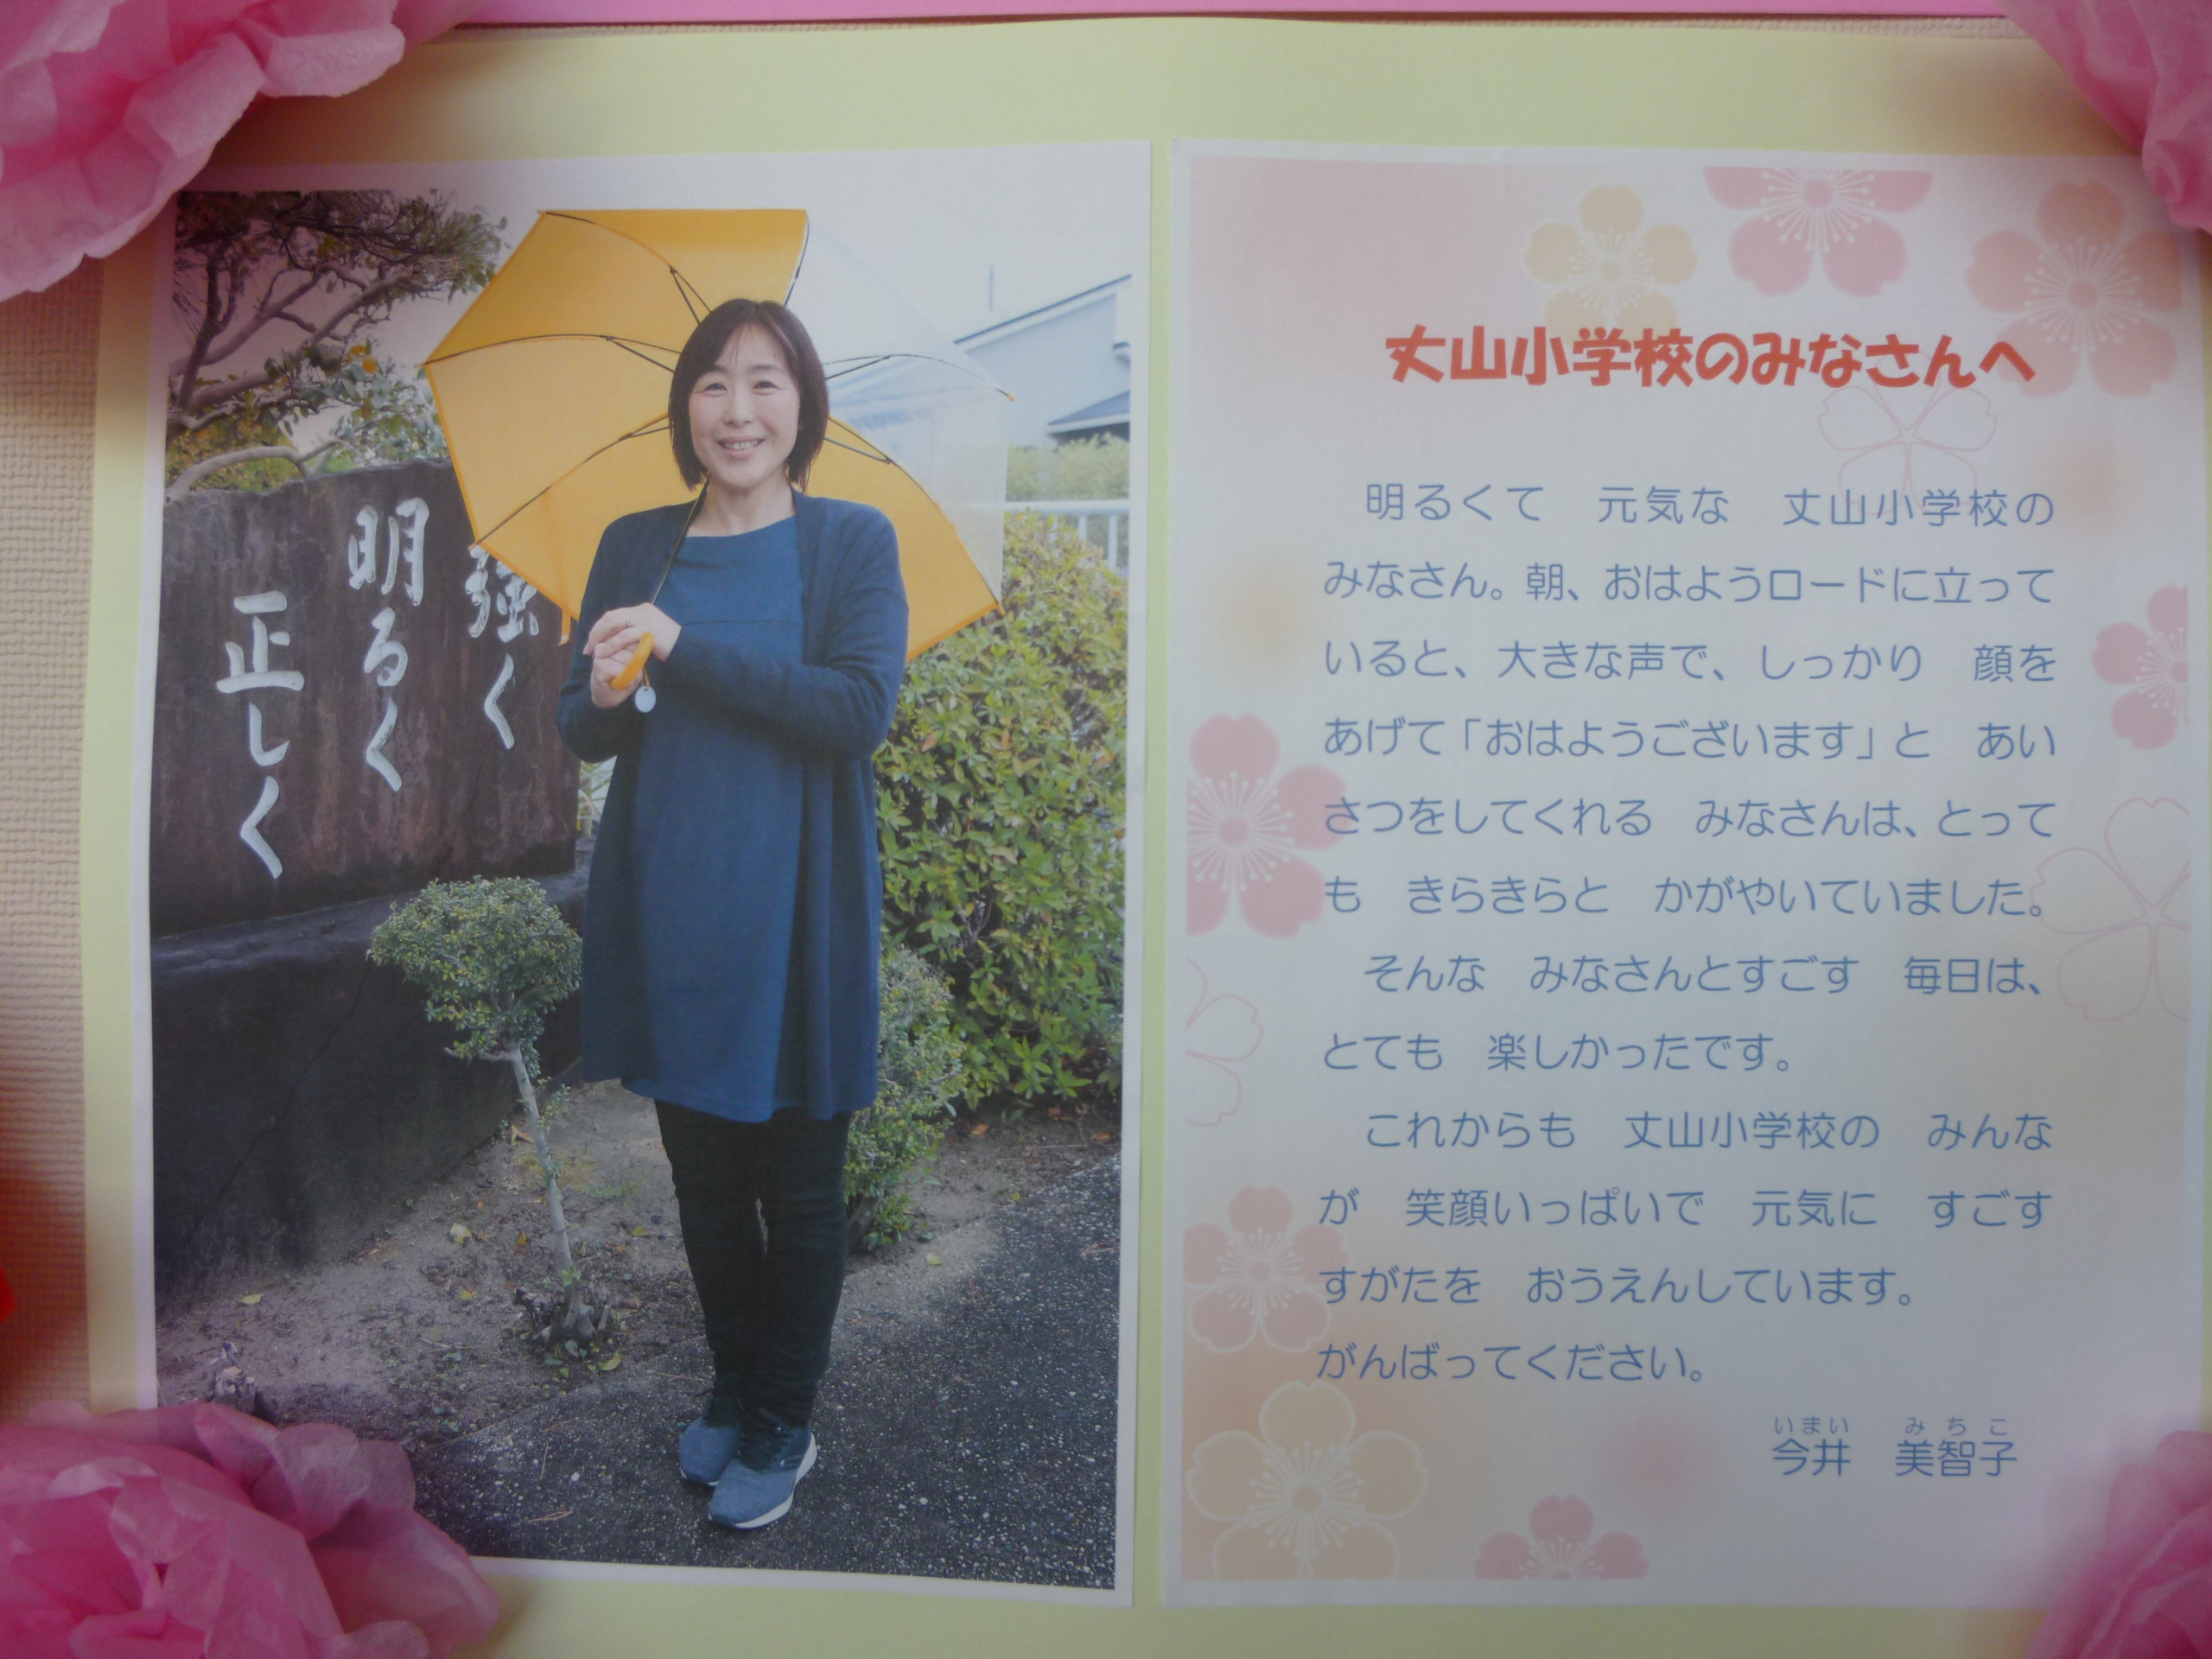 強く
明るく
正しく
丈山小学校のみなさんへ
明るくて　元気な　丈山小学校の
みなさん。朝、おはようロードに立って
いると、大きな声で、しっかり　顔を
あげて「おはようございます」と　あい
さつをしてくれる　みなさんは、とって
も　きらきらと　かがやいていました。
そんな　みなさんとすごす　毎日は、
とても　楽しかったです。
これからも　丈山小学校の　みんな
が　笑顔いっぱいで　元気に　すごす
すがたを　おうえんしています。
がんばってください。
いまい　みちこ
今井　美智子